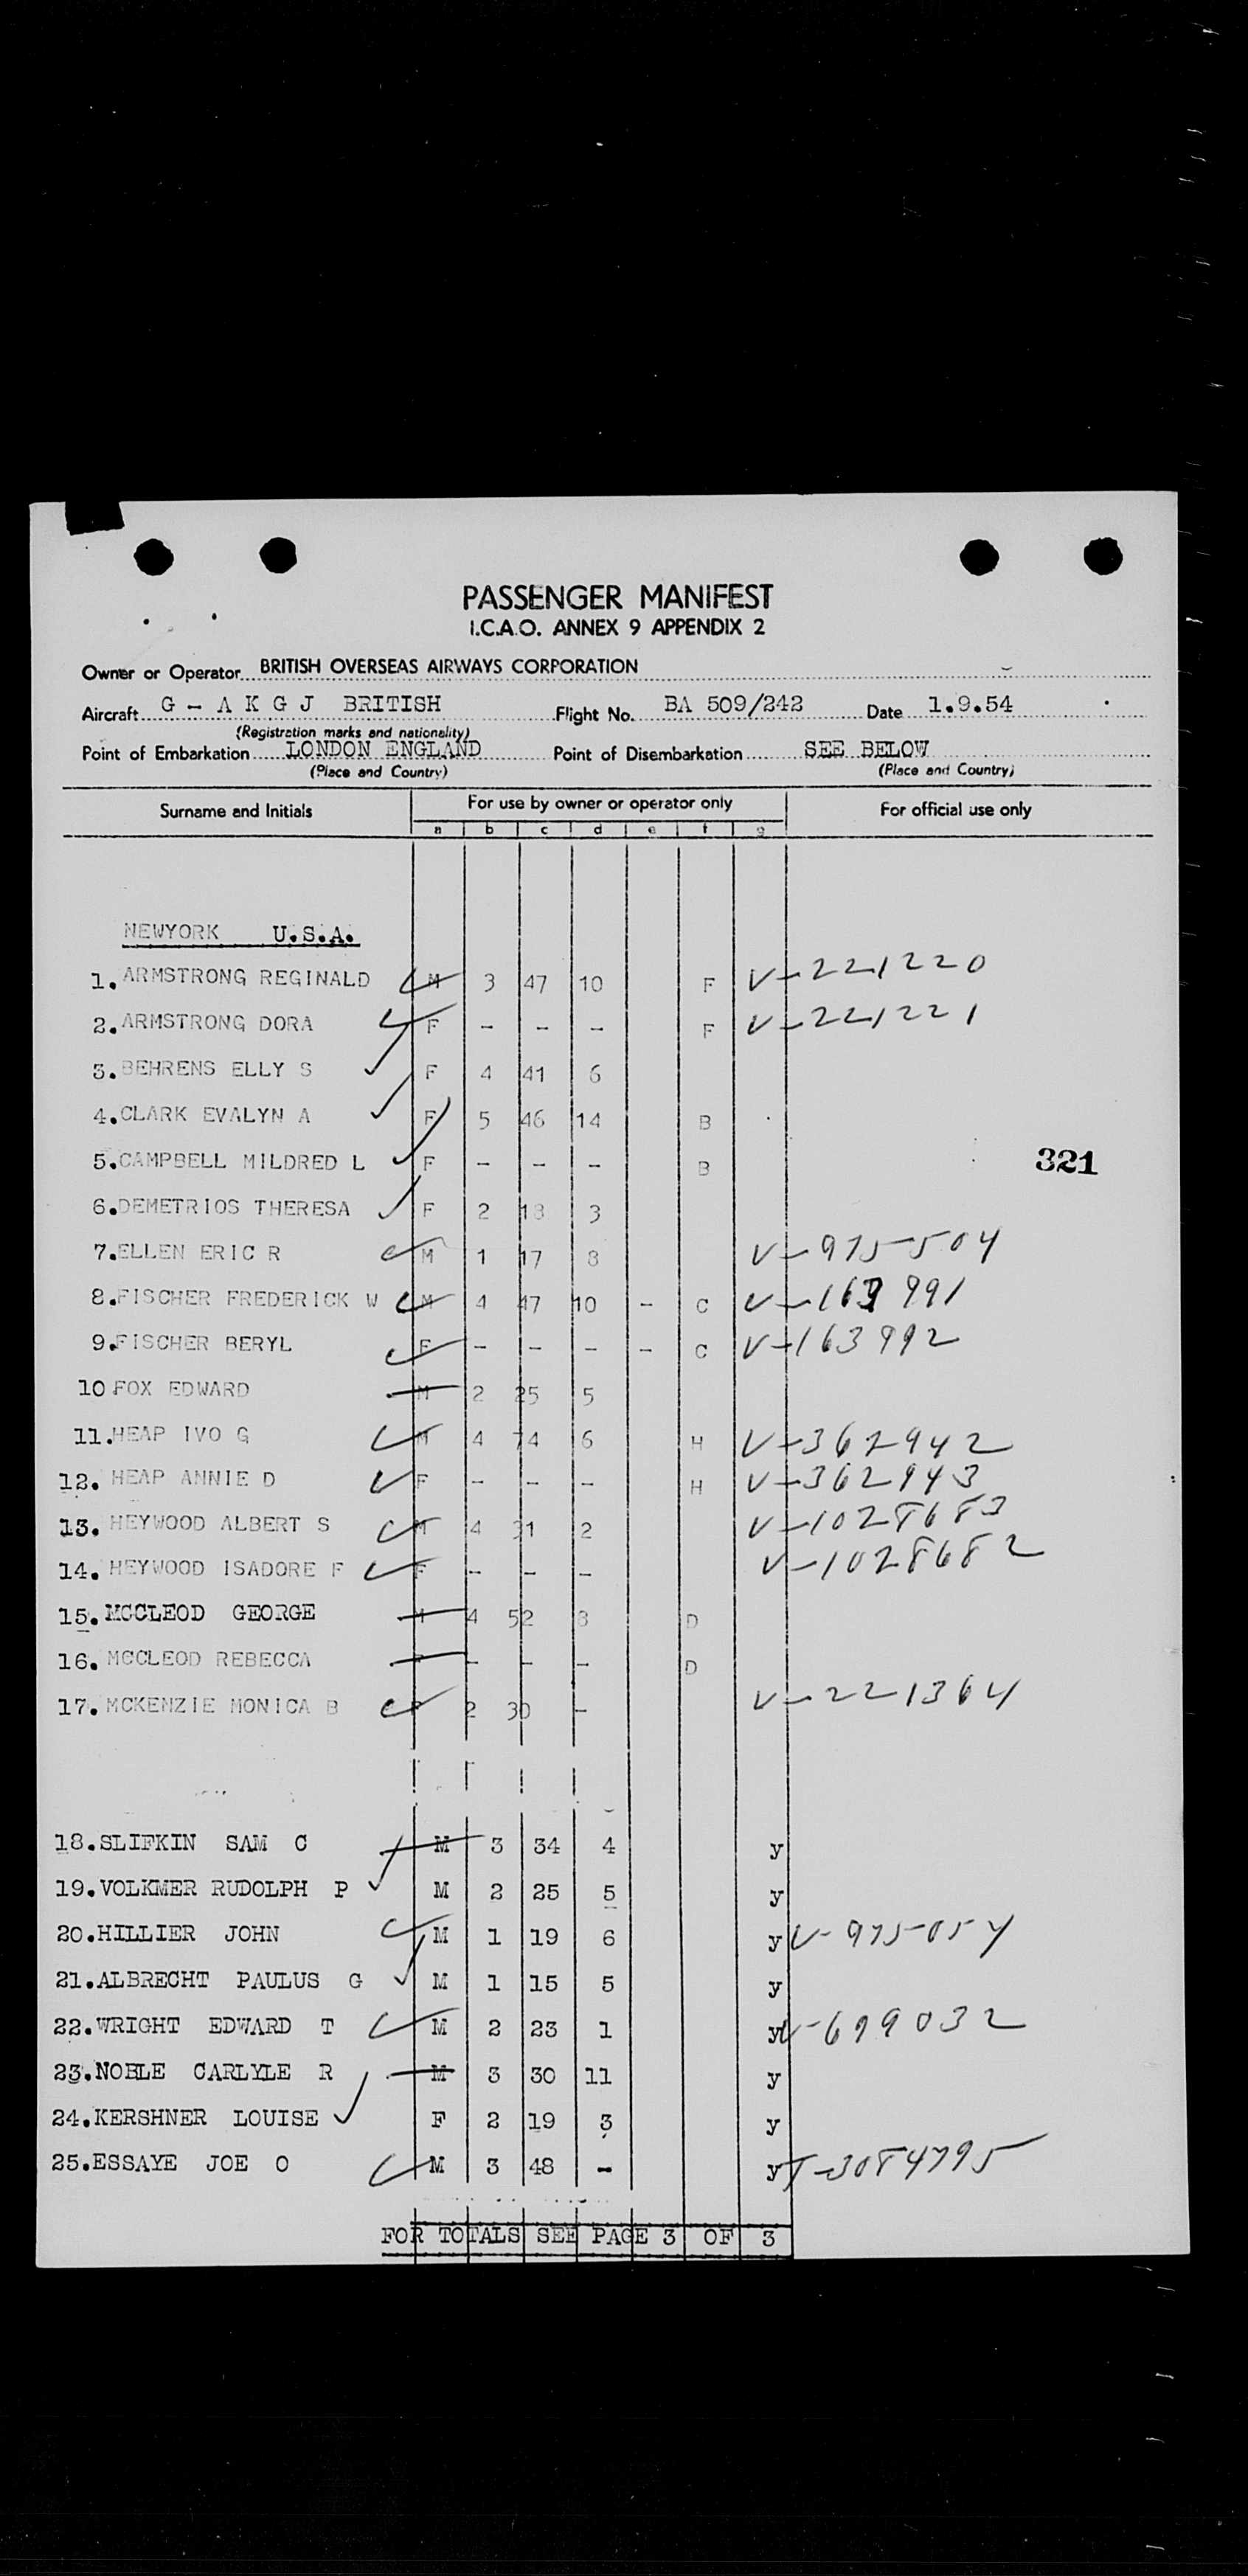 PASSENGER MANIFEST
I.C.A.O. ANNEX 9 APPENDIX 2
Owner or Operator BRITISH OVERSEAS AIRWAYS CORPORATION
Aircraft G - A K G J BRITISH Flight No. BA 509/242 Date 1.9.54
(Registration marks and nationality)
Point of Embarkation LONDON ENGLAND Point of Disembarkation SEE BELOW
(Place and Country) (Place and Country)
Surname and Initials For use by owner or operator only For official use only
a b c d e f g
NEWYORK U.S.A.
1. ARMSTRONG REGINALD M 3 47 10 F V-221220
2. ARMSTRONG DORA F - - - F V-221221
3. BEHRENS ELLY S F 4 41 6
4. CLARK EVALYN A F 5 46 14 B
5. CAMPBELL MILDRED L F - - - B 321
6. DEMETRIOS THERESA F 2 18 3
7. ELLEN ERIC R M 1 17 8 V-975504
8. FISCHER FREDERICK W M 4 47 10 - C V-163991
9. FISCHER BERYL F - - - - C V-163992
10 FOX EDWARD M 2 25 5
11. HEAP IVO G M 4 74 6 H V-362942
12. HEAP ANNIE D F - - - H V-362943
13. HEYWOOD ALBERT S M 4 31 2 V-1028683
14. HEYWOOD ISADORE F F - - - V-1028682
15. MCCLEOD GEORGE M 4 52 8 D
16. MCCLEOD REBECCA F - - - D
17. MCKENZIE MONICA B F 2 30 - V-221364
18. SLIFKIN SAM C M 3 34 4 y
19. VOLKMER RUDOLPH P M 2 25 5 y
20. HILLIER JOHN M 1 19 6 y V-975054
21. ALBRECHT PAULUS G M 1 15 5 y
22. WRIGHT EDWARD T M 2 23 1 y V-699032
23. NOBLE CARLYLE R M 3 30 11 y
24. KERSHNER LOUISE F 2 19 3 y
25. ESSAYE JOE O M 3 48 - y T-3084795
FOR TOTALS SEE PAGE 3 OF 3